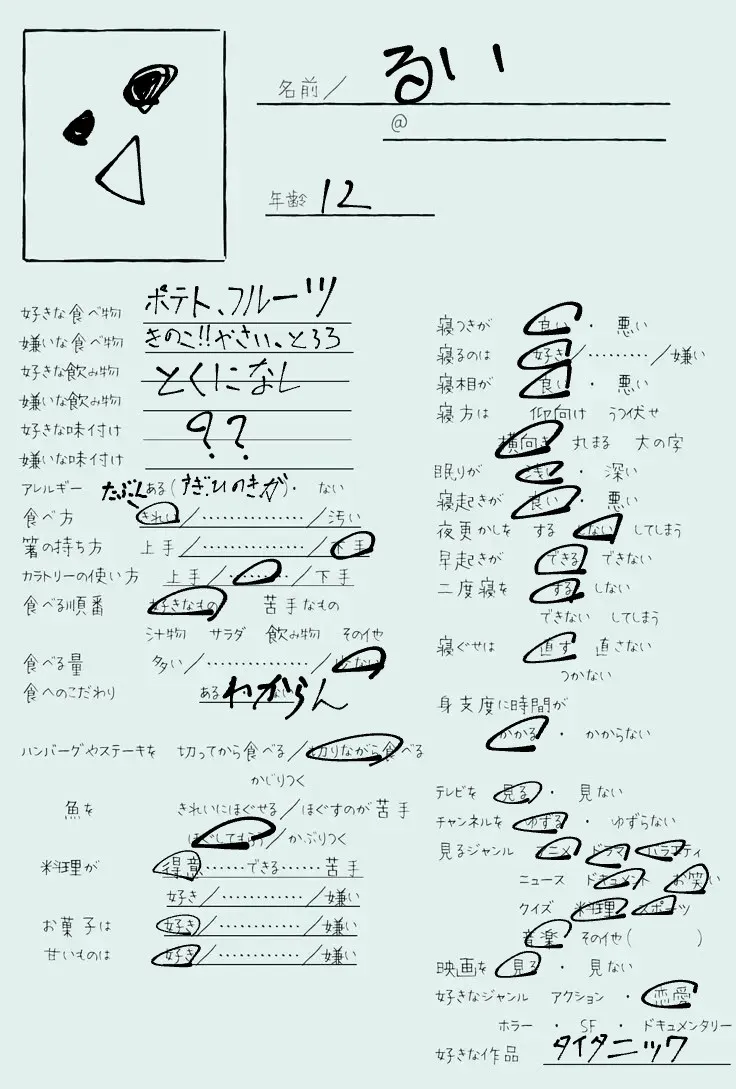 名前／ るい
@
年齢 12
好きな食べ物 ポテト、フルーツ
嫌いな食べ物 きのこ!!やさい。とろろ
好きな飲み物 とくになし
嫌いな飲み物
好きな味付け ??
嫌いな味付け
アレルギー たぶんある(すぎ、ひのきが)・ ない
食べ方 きれい／…………／汚い
箸の持ち方 上手／…………／下手
カラトリーの使い方 上手／…………／下手
食べる順番 好きなもの 苦手なもの
汁物 サラダ 飲み物 その他
食べる量 多い／…………／少ない
食へのこだわり ある わからん ない
ハンバーグやステーキを 切ってから食べる／切りながら食べる
かじりつく
魚を きれいにほぐせる／ほぐすのが苦手
ほぐしてもらう／かぶりつく
料理が 得意……できる……苦手
好き／…………／嫌い
お菓子は 好き／…………／嫌い
甘いものは 好き／…………／嫌い
寝つきが 良い ・ 悪い
寝るのは 好き／………／嫌い
寝相が 良い ・ 悪い
寝方は 仰向け うつ伏せ
横向き 丸まる 大の字
眠りが 浅い ・ 深い
寝起きが 良い ・ 悪い
夜更かしを する しない してしまう
早起きが できる できない
二度寝を する しない
できない してしまう
寝ぐせは 直す 直さない
つかない
身支度に時間が
かかる ・ かからない
テレビを 見る ・ 見ない
チャンネルを ゆずる ・ ゆずらない
見るジャンル アニメ ドラマ バラエティ
ニュース ドキュメント お笑い
クイズ 料理 スポーツ
音楽 その他( )
映画を 見る ・ 見ない
好きなジャンル アクション ・ 恋愛
ホラー ・ SF ・ ドキュメンタリー
好きな作品 タイタニック